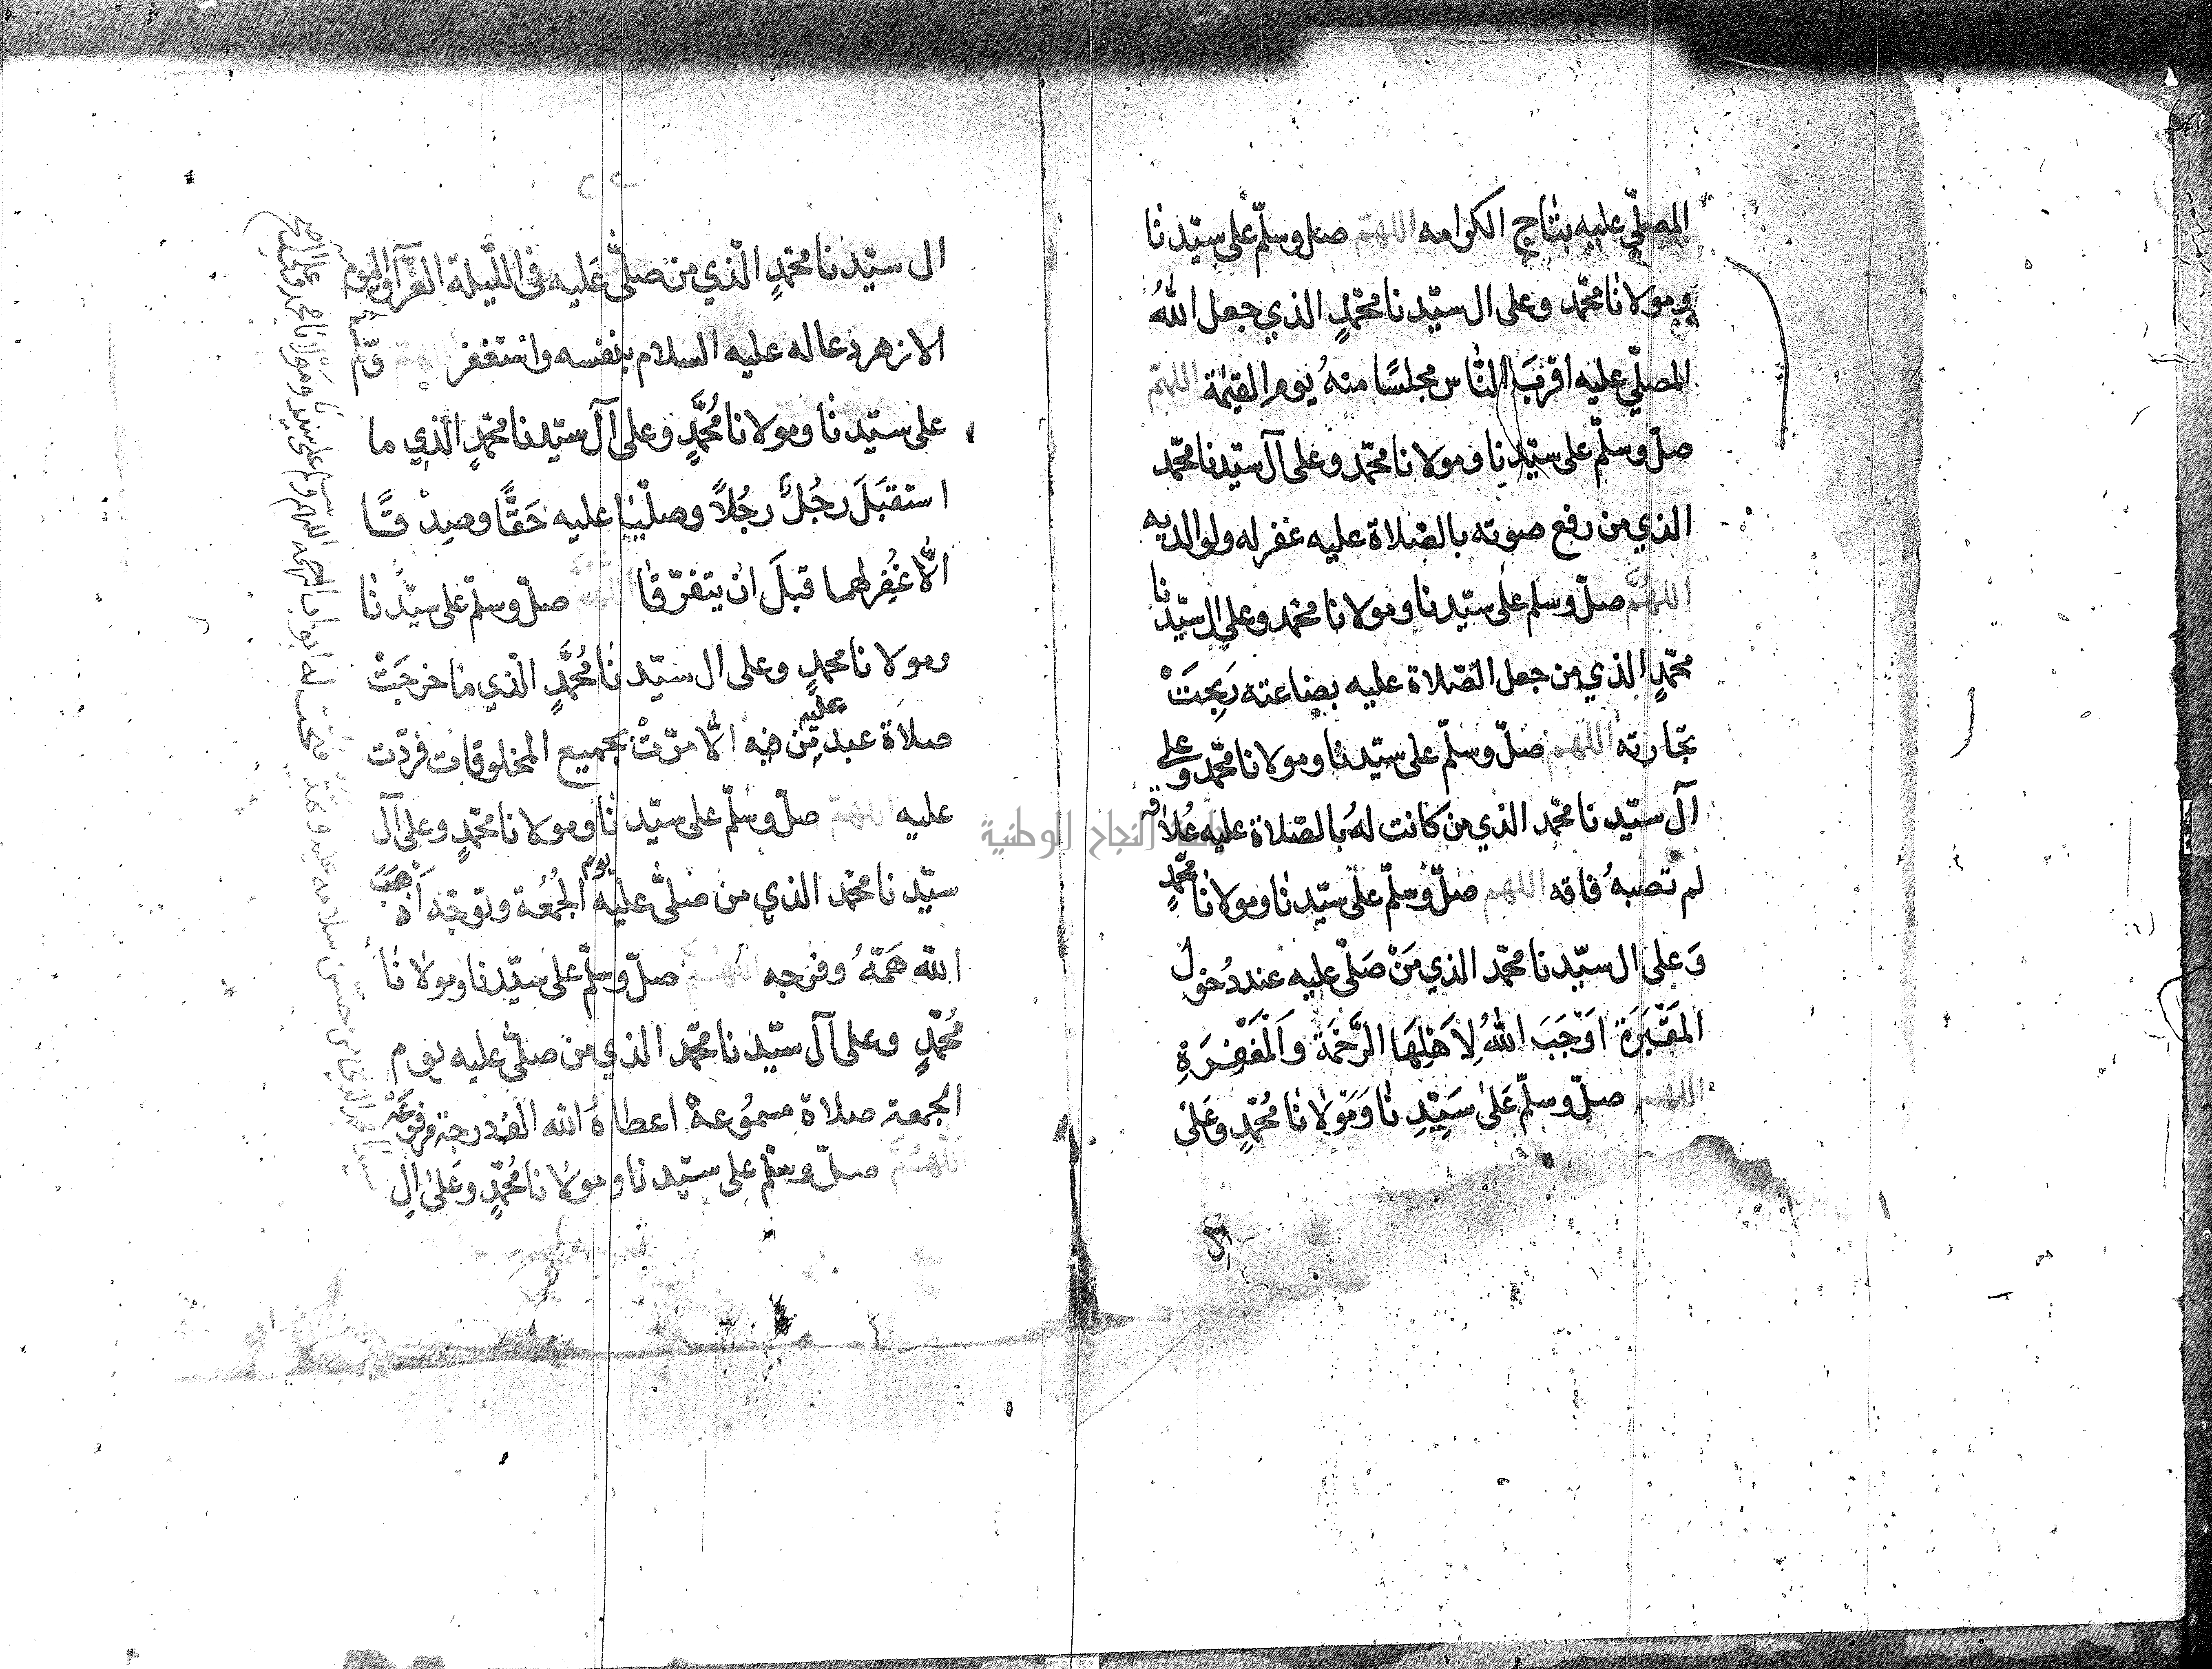 المصلّي عليه بتاج الكرامه اللهم صل وسلّم على سيّدنا
ومولانا محمّد وعلى ال سيّدنا محمّدٍ الذي جعل اللهُ
المصلّي عليه اقربَ النّاس مجلسًا منهُ يوم القيٰمة اللهمّ
صلّ وسلّم على سيّدنا ومولانا محمّد وعلى آل سيّدنا محمّد
الذي من رفع صوته بالصّلاة عليه غفر له ولوالديه
اللهمّ صلّ وسلم على سيّدنا ومولانا محمّد وعلى ال سيّدنا
محمّدٍ الذي من جعل الصّلاة عليه بضاعته رَبِحَتْ
تجارته اللهم صلّ وسلّم على سيّدنا ومولانا محمّد وعلى
آل سيّدنا محمّد الذي من كانت لهُ بالصّلاة عليه عُلاقه
لم تصبهُ فاقه اللهم صلّ وسلّم على سيّدنا ومولانا محمّدٍ
وَعلى ال سيّدنا محمّد الذي مَنْ صَلّى عليه عند دُخول
المَقْبَرَة اَوْجَبَ اللهُ لِاَهْلِهَا الرَّحْمَة وَالْمَغْفِرَةِ
اللهم صلّ وسلّم عَلىٰ سَيِّدِنَا وَمَوْلَانَا مُحَمّدٍ وعَلىٰ
ال
٢٢
ال سيّدنا محمّدٍ الّذي من صلّى عَليه فى اللّيلة الغرّآ واليوم
الازهر دعا له عليه السلام بنفسه واستغفر اللهمّ صلّ وسلّم
على سيّدنا ومولانا مُحمَّدٍ وعلى آل سيّدنا محمّدٍ الّذي ما
استقبَلَ رجُلٌ رجُلاً وصلّيا عليه حَقًّا وصِدْقًا
الّا غُفِر لهما قبلَ ان يتفرّقا اللهم صلّ وسلّم على سيّدنا
ومولانا محمدٍ وعلى ال سيّدنا مُحمَّدٍ الّذي ما خرجَتْ
صلاة عبد عليه مِّن فيه الّا مرّتْ بجميع المخلوقات فردّت
عليه اللهمّ صلّ وسلّم على سيّدنا ومولانا محمّدٍ وعلى آل
سيّدنا محمّد الذي من صلّى عليه يوم الجُمُعَة وتوجّه اَذْهَبَ
الله هَمّهُ وفرجه اللهم صلّ وسلّم على سيّدنا ومولانا
مُحمّدٍ وعلى آل سيّدنا محمّد الذي من صلّى عليه يوم
الجمعة صلاة مسمُوعة اعطاهُ الله الف درجة مرفوعَة
اللهم صلّ وسلّم على سيّدنا ومولانا مُحمّدٍ وعَلى الِ
اللهم وسلم على سيدنا ومولانا محمد وعلى ال
جامعة النجاح الوطنية